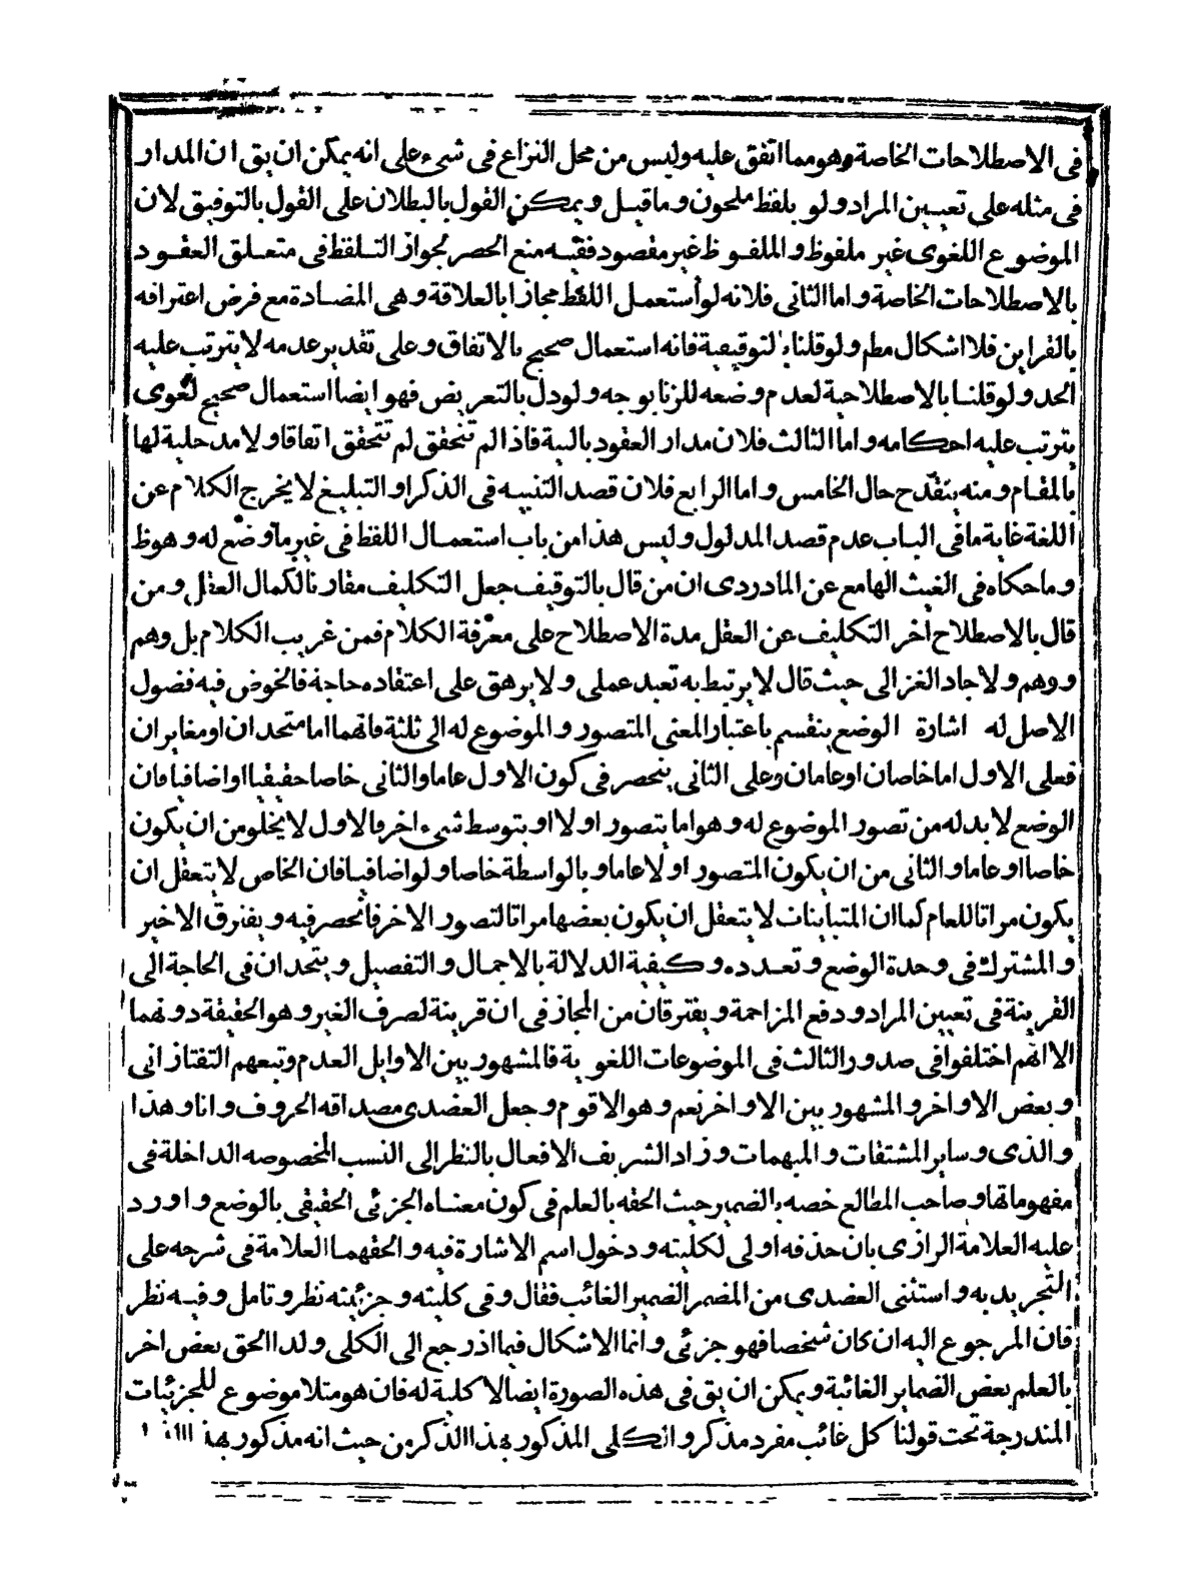 فى الاصطلاحات الخاصة وهو مما اتفق عليه وليس من محل النزاع فى شىء على انه يمكن ان يق ان المدار
فى مثله على تعيين المراد ولو بلفظ ملحون وما قيل ويمكن القول بالبطلان على القول بالتوفيق لان
الموضوع اللغوى غير ملفوظ والملفوظ غير مقصود ففيه منع الحصر لجواز التلفظ فى متعلق العقود
بالاصطلاحات الخاصة واما الثانى فلانه لو أستعمل اللفظ مجازا بالعلاقة وهى المضادة مع فرض اعترافه
بالقراين فلا اشكال مطم ولو قلنا بالتوقيفية فانه استعمال صحيح بالاتفاق وعلى تقدير عدمه لا يترتب عليه
الحد ولو قلنا بالاصطلاحية لعدم وضعه للزنا بوجه ولو دل بالتعريض فهو ايضا استعمال صحيح لغوى
يترتب عليه احكامه واما الثالث فلان مدار العقود بالنية فاذا لم تتحقق لم تتحقق اتفاقا ولا مدخلية لها
بالمقام ومنه ينقدح حال الخامس واما الرابع فلان قصد التنبيه فى الذكر او التبليغ لا يخرج الكلام عن
اللغة غاية ما فى الباب عدم قصد المدلول وليس هذا من باب استعمال اللفظ فى غير ما وضع له وهو ظ
وما حكاه فى الغيث الهامع عن الماوردى ان من قال بالتوقيف جعل التكليف مقارنا لكمال العقل ومن
قال بالاصطلاح اخر التكليف عن العقل مدة الاصطلاح على معرفة الكلام فمن غريب الكلام بل وهم
ووهم ولا جاد الغزالى حيث قال لا يرتبط به تعبد عملى ولا يرهق على اعتقاده حاجة فالخوض فيه فضول
الاصل له اشارة الوضع ينقسم باعتبار المعنى المتصور والموضوع له الى ثلثة فانهما اما متحدان او مغايران
فعلى الاول اما خاصان او عامان وعلى الثانى ينحصر فى كون الاول عاما والثانى خاصا حقيقيا او اضافيا فان
الوضع لا بد له من تصور الموضوع له وهو اما يتصور اولا او بتوسط شىء اخر فالاول لا يخلو من ان يكون
خاصا او عاما والثانى من ان يكون المتصور اولا عاما وبالواسطة خاصا ولو اضافيا فان الخاص لا يتعقل ان
يكون مراتا للعام كما ان المتباينات لا يتعقل ان يكون بعضها مراتا لتصور الاخر فانحصر فيه ويفترق الاخير
والمشترك فى وحدة الوضع وتعدده وكيفية الدلالة بالاجمال والتفصيل ويتحدان فى الحاجة الى
القرينة فى تعيين المراد ودفع المزاحمة ويفترقان من المجاز فى ان قرينة لصرف الغير وهو الحقيقة دونهما
الا انهم اختلفوا فى صدور الثالث فى الموضوعات اللغوية فالمشهور بين الاوايل العدم وتبعهم التفتازانى
وبعض الاواخر والمشهور بين الاواخر نعم وهو الاقوم وجعل العضدى مصداقه الحروف وانا وهذا
والذى وساير المشتقات والمبهمات وزاد الشريف الافعال بالنظر الى النسب المخصوصه الداخلة فى
مفهوماتها وصاحب المطالع خصه بالضمير حيث الحقه بالعلم فى كون معناه الجزئى الحقيقى بالوضع واورد
عليه العلامة الرازى بان حذفه اولى لكليته ودخول اسم الاشارة فيه والحقهما العلامة فى شرحه على
التجريد به واستثنى العضدى من المضمر الضمير الغائب فقال وفى كليته وجزئيته نظر وتامل وفيه نظر
فان المرجوع اليه ان كان شخصا فهو جزئى وانما الاشكال فيما اذ رجع الى الكلى ولذا الحق بعض اخر
بالعلم بعض الضماير الغائبة ويمكن ان يق فى هذه الصورة ايضا لا كلية له فان هو مثلا موضوع للجزئيات
المندرجة تحت قولنا كل غائب مفرد مذكر والكلى المذكور بهذا الذكر من حيث انه مذكور بهذا